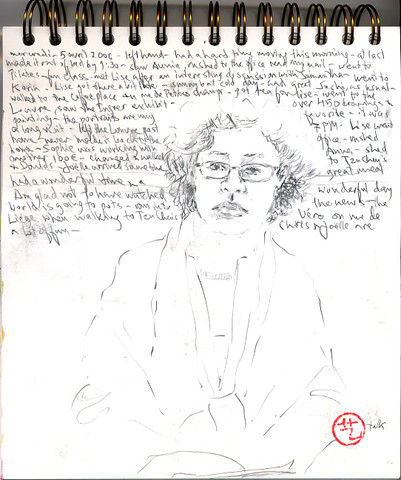 mercredi - 5 avril 2006 - left hand - had a hard time moving this morning - at last
made it out of bed by 1:30 - saw Annie rushed to the office read my mail - went to
Pilates - fun class - met Lise after an interesting discussion with Samantha - went to
Karin - Lise got there a bit late - sunny but cold day - had great Sushi, as usual
walked to the Café place rue de Petits champs - got tea for Lise - went to the
Louvre, saw the Ingres exhibit - over 450 drawings &
painting - the portraits are my favorite - it was
a long visit - left the Louvre past 7 PM - Lise went
home
work - Sophie was working with me
another 100 € - changed & walked to Jenchey's
Davids - Joëlle arrived same time great meal
had a wonderful time wonderful day
Am glad not to have watched the news - the
world is going to pots - ran into Véro on rue de
Liège when walking to Jencheis Chris & Joëlle are
a lot of fun -
talk